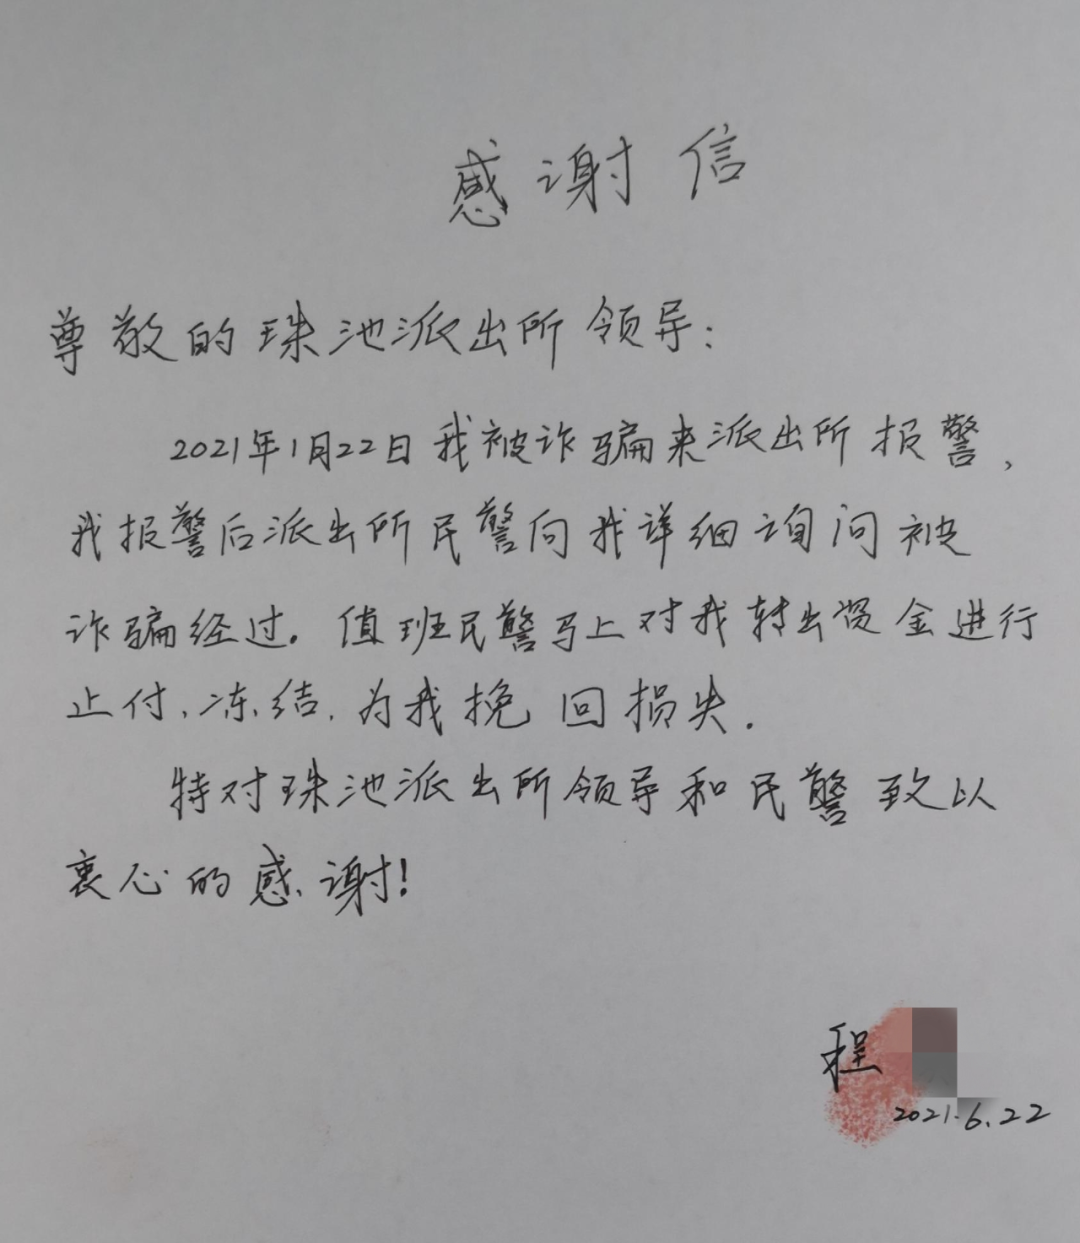 感谢信
尊敬的珠池派出所领导：
2021年1月22日我被诈骗来派出所报警，
我报警后派出所民警向我详细询问被
诈骗经过。值班民警马上对我转出资金进行
止付、冻结，为我挽回损失.
特对珠池派出所领导和民警致以
衷心的感谢!
程
2021.6.22